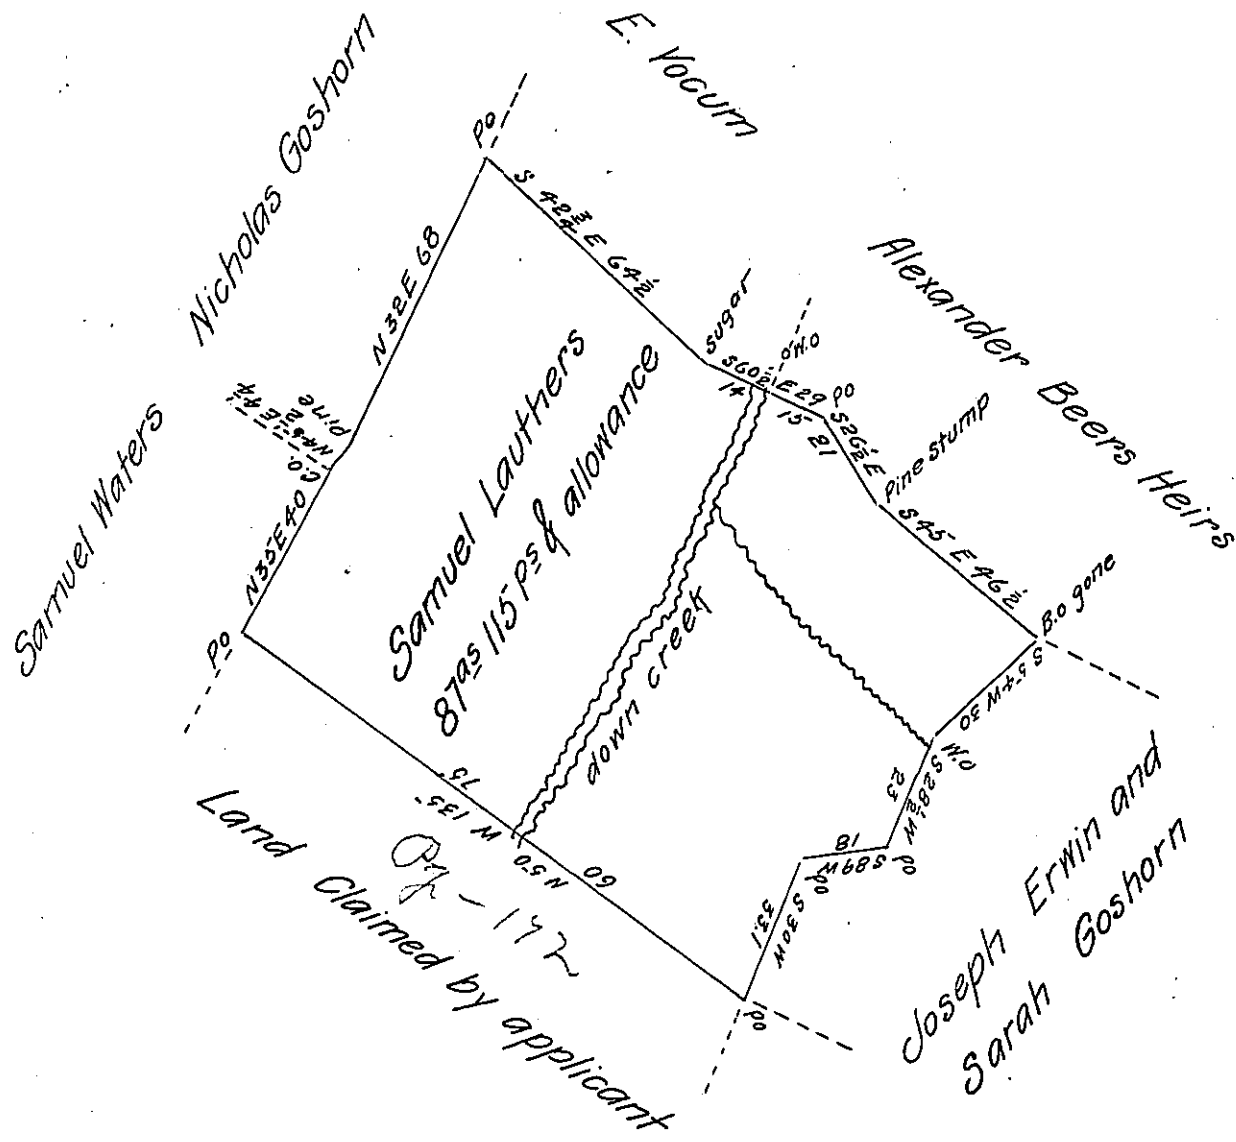 E. Yocum
Nicholas Goshorn
Samuel Waters
Alexander Beers Heirs
Joseph Erwin and
Sarah Goshorn
Land Claimed by applicant
Samuel Lauthers
87as 115 Ps & allowance
down creek
Po
S 42¾ E 64½
Sugar
S60½ E 29
14
W.O
15
Po
21
S26½ E
Pine stump
S45 E 46½
B.O gone
S 54 W 30
W.O
S28½ W
23
Po
S89W
18
Po
S30W
33.1
Po
N50 W 135
60
75
Po
N35E40
C.O.
Pine
N32E 68